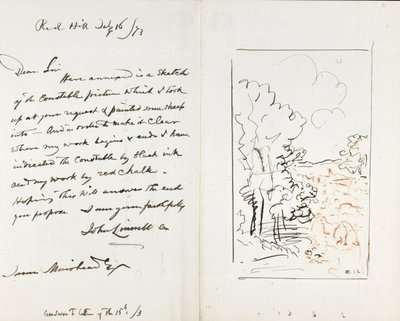 Red Hill July 16/73
Dear Sir
Here annexed is a sketch
of the Constable picture which I took
up at your request & painted some sheep
into. And in order to make it clear
where my work begins & ends I have
indicated the Constable by black ink
and my work by red chalk.
Hoping this will answer the end
you propose I am yours faithfully
John Linnell Sen
James Muirhead Esq
answer to letter of the 15th /73